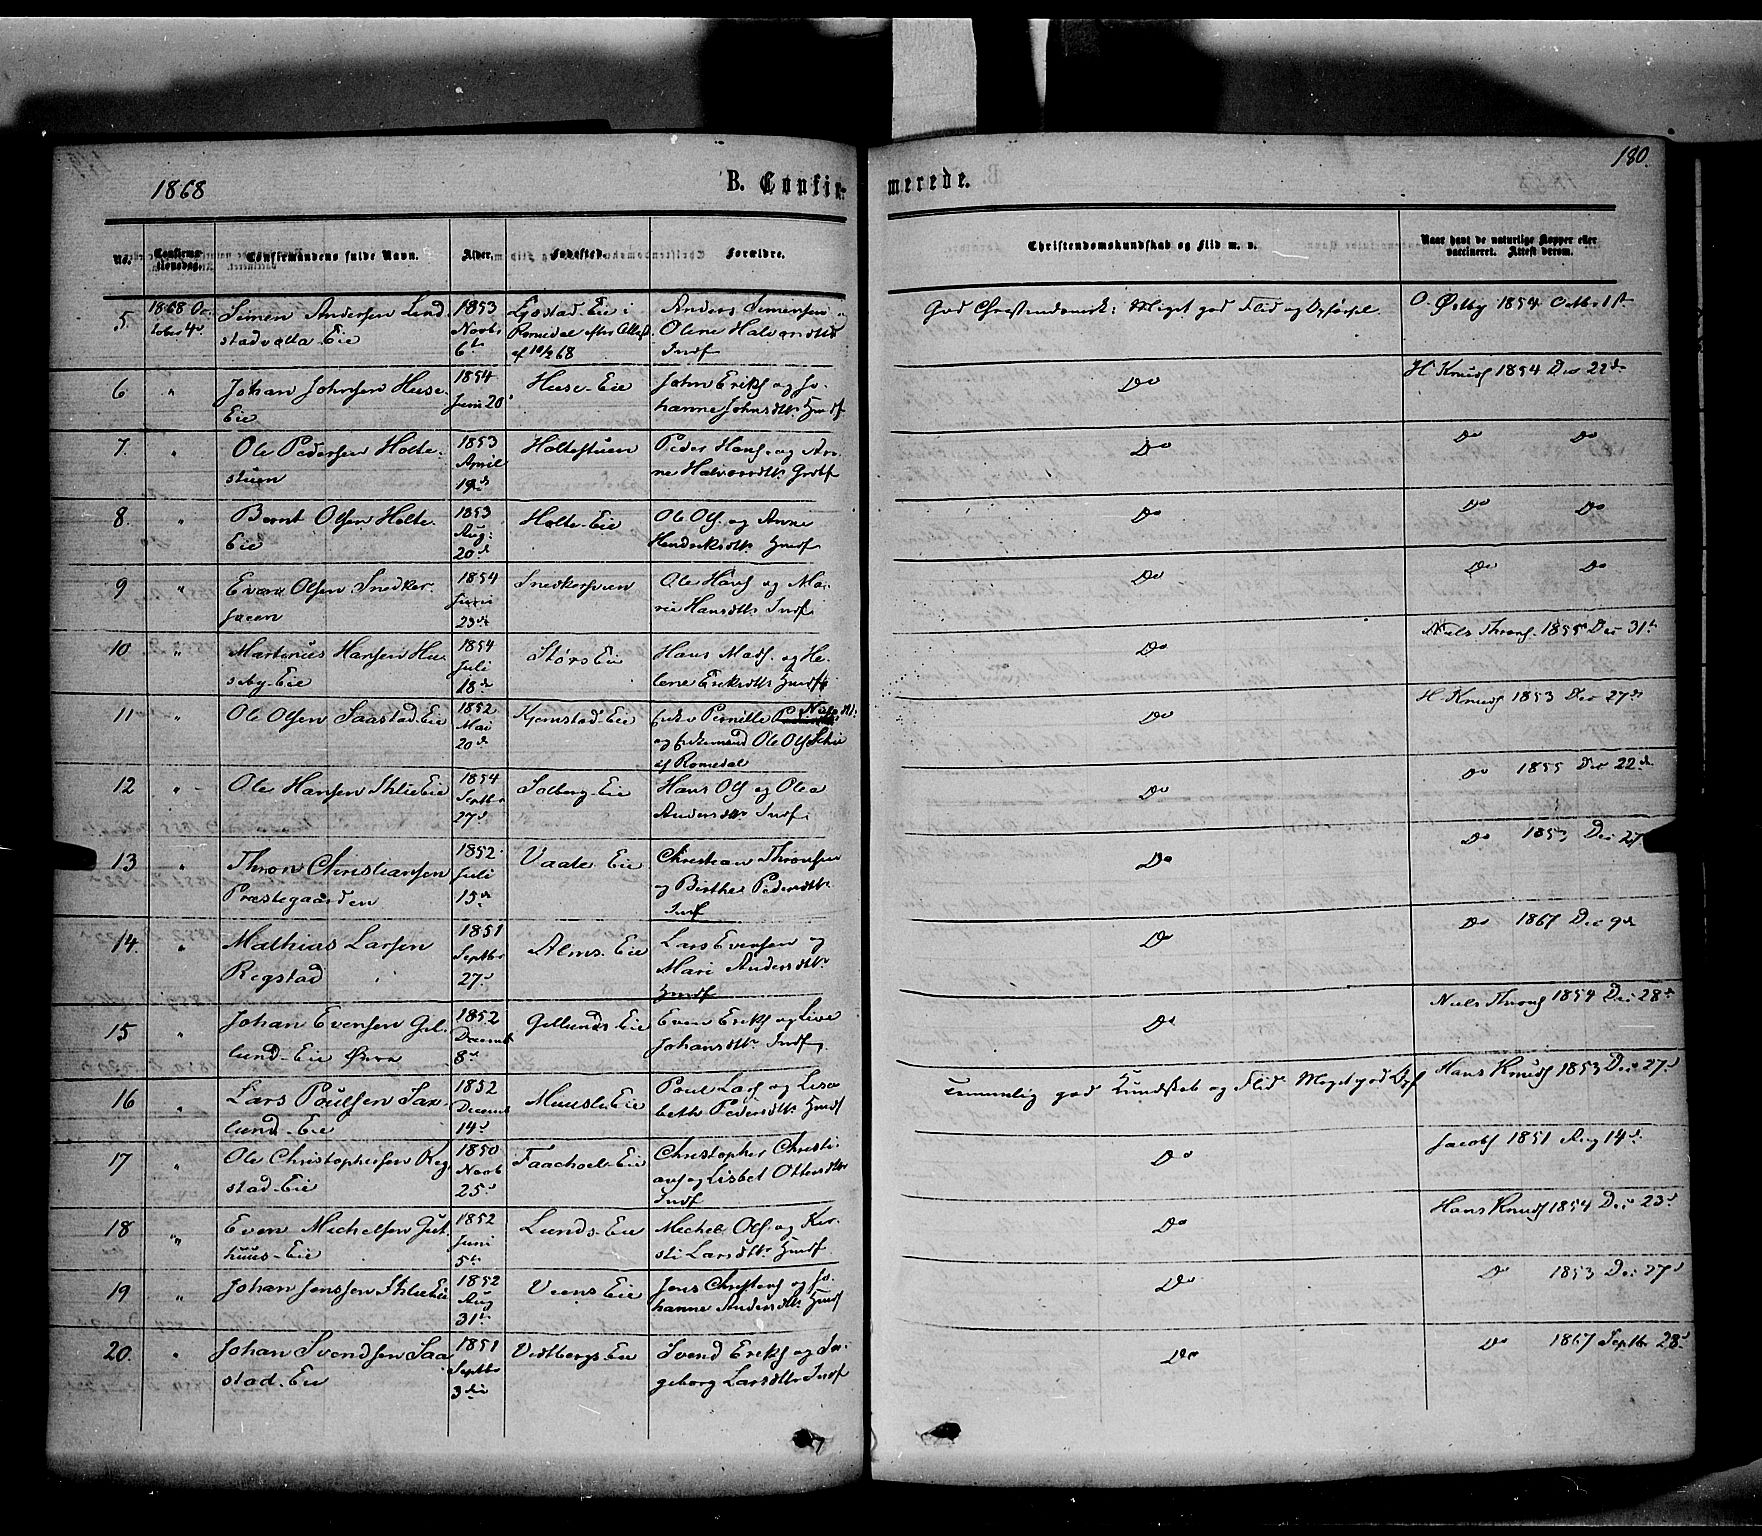 1868
B. Confir-
merede.
180.
No.
Confirma-
tionsdag.
Confirmandens fulde Navn.
Alder.
Fødested.
Forældre.
Christendomskundskab og Flid m. v.
Naar havt de naturlige Kopper eller
vaccineret. Attest derom.
5
1868 Oc-
tober 4de
Simen Andersen Lind
stadvolla Eie
1853
Novbr
6te
Romedal efter Attest
af 10/2 68
Anders Simensen
Olene Halvorsdtr
Indf
God Christendomsk: Meget god Flid og Opførsel
O. Østby 1854 Octbr 1st
6
"
Johan Johnsen Huse-
Eie
1854
Juni 20
Huse-Eie
John Eriks. og Jo-
hanne Johnsdtr. Hmdf
Do
H Knuds 1854 Dec 22de
7.
"
Ole Pedersen Holte-
stuen
1853
April
19de
Holtestuen
Peder Hans. og An-
ne Halvorsdtr Grdbf
Do
Do Do
8.
"
Bernt Olsen Holte-
Eie
1853
Aug:
20de
Holte-Eie
Ole Ols. og Anne
Hendriksdtr Hmdf
Do
Do Do
9
"
Even Olsen Snedker-
sveen
1854
Juni
23de
Snedkersveen
Ole Hans. og Ma-
rie Hansdtr Indf
Do
Do Do
10
"
Martinus Hansen Hu-
seby-Eie
1854
Juli
18de
Størs Eie
Hans Mads. og He-
lene Eriksdtr Hmdf
Do
Niels Throns. 1855 Dec 31te
11
"
Ole Olsen Saastad-Eie
1852
Mai
20de
Kjernstad-Eie
Enke Pernille
og Enkemand Ole Ols
af Romedal
Do
H Knuds 1853 Dec 27de
12
"
Ole Hansen Ihle Eie
1854
Septbr
27de
Solberg-Eie
Hans Ols og Olea
Andersdtr Indf.
Do
Do 1855 Dec 22de
13
"
Thron Christiansen
Præstegaarden
1852
Juli
15de
Vaale-Eie
Christian Thronsen
og Birthe Pedersdtr
Indf
Do
Do 1853 Dec 27
14.
"
Mathias Larsen
Rogstad
1851
Septbr
27de
Alms-Eie
Lars Evensen og
Mari Andersdtr
Hmdf
Do
Do 1867 Dec 9de
15
"
Johan Evensen Gil-
lund-Eie Øvre
1852
Decemb
8de
Gillunds Eie
Even Eriks og Live
Johansdtr Indf
Do
Niels Throns 1854 Dec 28de
16
"
Lars Poulsen Sax-
lund-Eie
1852
Decemb
14de
Muusli-Eie
Poul Lars og Lisa-
beth Pedersdtr Hmdf
Temmelig god Kundskab og Flid. Meget god Opf
Hans Knuds 1853 Dec 27de
17
"
Ole Christophersen Rog-
stad-Eie
1850
Novb
25de
Faachoel-Eie
Christopher Christi-
ans og Lisbet Ottersdtr
Indf
Do
Jacobs 1851 Aug 14de
18
"
Even Michelsen Gut-
huus-Eie
1852
Juni
5te
Lunds-Eie
Michel Ols. og Ker-
sti Larsdtr. Hmdf
Do
Hans Knuds 1854 Dec 23de
19
"
Johan Jenssen Ihle Eie
1852
Aug
31te
Veens Eie
Jens Christens og Jo-
hanne Andersdtr Hmdf
Do
Do 1853 Dec 27de
20.
"
Johan Svendsen Saa
stad-Eie
1851
Septbr
3die
Vidtbergs-Eie
Svend Eriks og In-
geborg Larsdtr Indf
Do
Do 1867 Septbr 28de